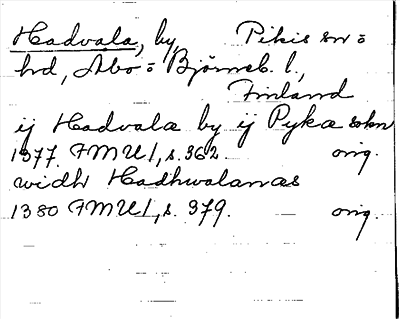 Hadvala, by, Pikis sn o
hd, Åbo o Björneb. l,
Finland
ij Hadvala by ij Pyka sokn
1377 FMU I, s. 362. orig.
widh Hadhwalanæs
1380 FMU I, s. 379. orig.